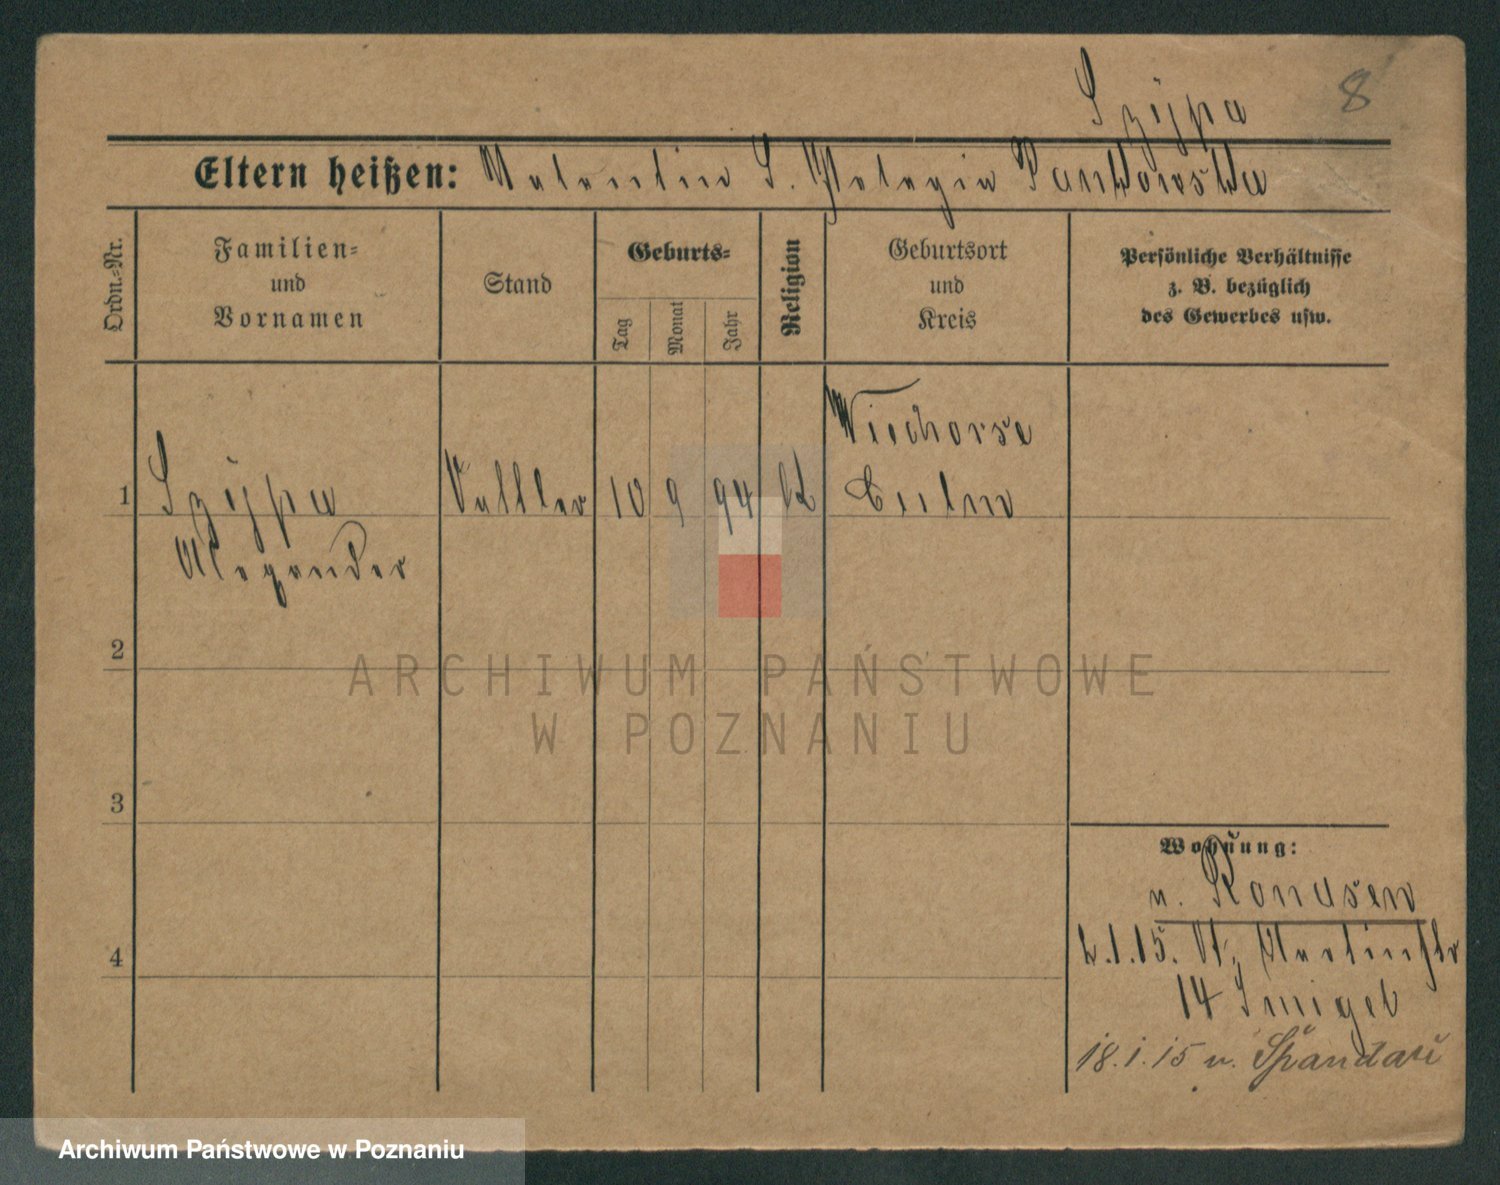 Szÿpa 8
Eltern heißen: Valentin S. Pelagia Pankowska
Ordn.=Nr.
Familien=
und
Vornamen
Stand
Geburts=
Tag Monat Jahr
Religion
Geburtsort
und
Kreis
Persönliche Verhältnisse
z. B. bezüglich
des Gewerbes usw.
1 Szÿpa Sattler 10 9 94
Alexander
Culm
2
3
4
Wohnung:
n. Kondsen
2.1.15. St. Martinstr
14
18.1.15 n. Spandau
ARCHIWUM PAŃSTWOWE
W POZNANIU
Archiwum Państwowe w Poznaniu